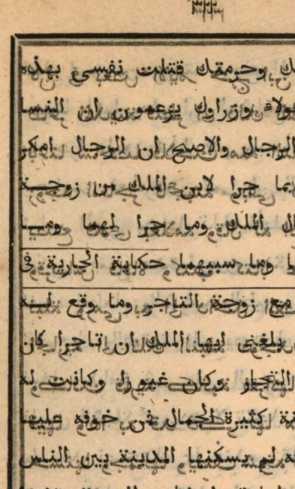 وحرمتك قتلت نفسي بهذه
وزراوك يزعمون ان النسا
الرجال والاصح ان الرجال امكر
جرا لابن الملك من زوجة
الملك وما جرا لهما ومـا
وما سببهما حكاية الجارية في
مع زوجة التاجر وما وقع لـه
بلغني ايها الملك ان تاجرا كان
التجار وكان غيورا وكانت له
كثيرة الجمال فمن خوفه عليها
لم يسكنها المدينة بين الناس